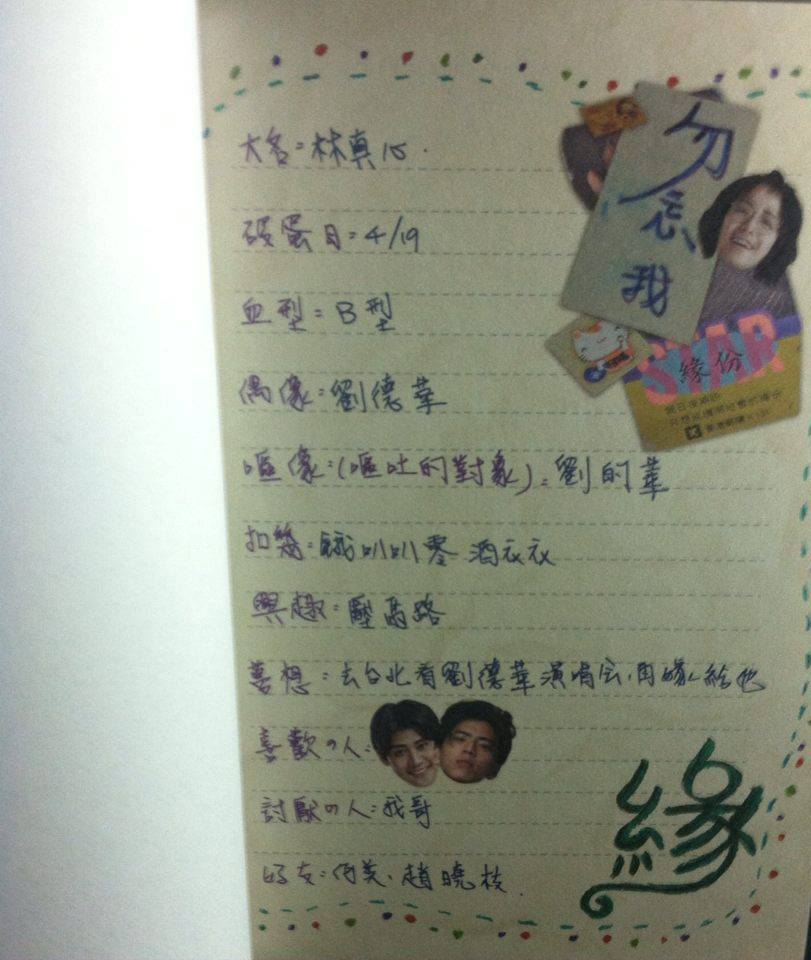 大名:林真心.
破蛋日:4/19
血型:B型
偶像:劉德華
嘔像:(嘔吐的對象):劉的華
扣幾:餓叭叭零 酒衣衣
興趣:壓馬路
夢想:去台北看劉德華演唱会,再嫁給他
喜歡の人:
討厭の人:我哥
好友:何美、趙曉枝.
勿忘我
STAR
緣份
緣